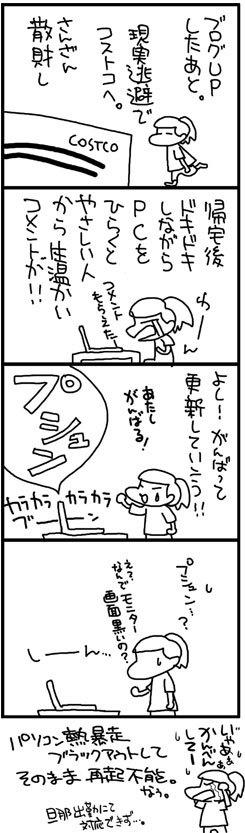 ブログUP
したあと。
現実逃避で
コストコへ。
さんざん
散財し
COSTCO
帰宅後
ドキドキ
しながら
PCを
ひらくと
やさしい人
から生温かい
コメントが!!
コメント
もらえた
わーーん
よし!がんばって
更新していこう!!
あたし
がんばる!
プシュン
カラカラ カラカラ
ブーーン
プシュン…?
え?
なんでモニター
画面黒いの?
しーーん…
いやぁぁ
かんべん
してー
パソコン熱暴走
ブラックアウトして
そのまま再起不能。
なう。
旦那出勤にて
対応できず…。